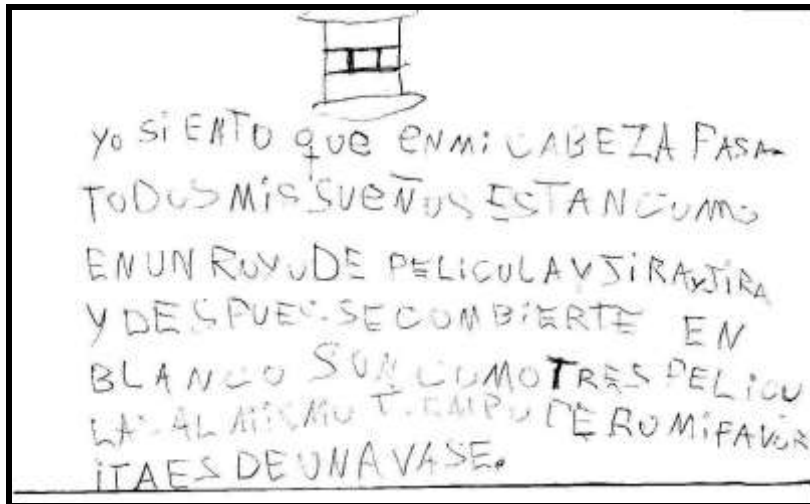 Yo SiENTO QUe eNMi CABEZA PASAN
TODOS MIS SUeÑOS ESTAN COMO
EN UN ROYO DE PELICULA Y JiRA Y JiRA
Y DESPUES SE COMBiERTE EN
BLANCO SON COMO TRES PELiCU
LAS AL MISMO TiEMPO PERO MiFAVOR
iTA ES DE UNA VASE.